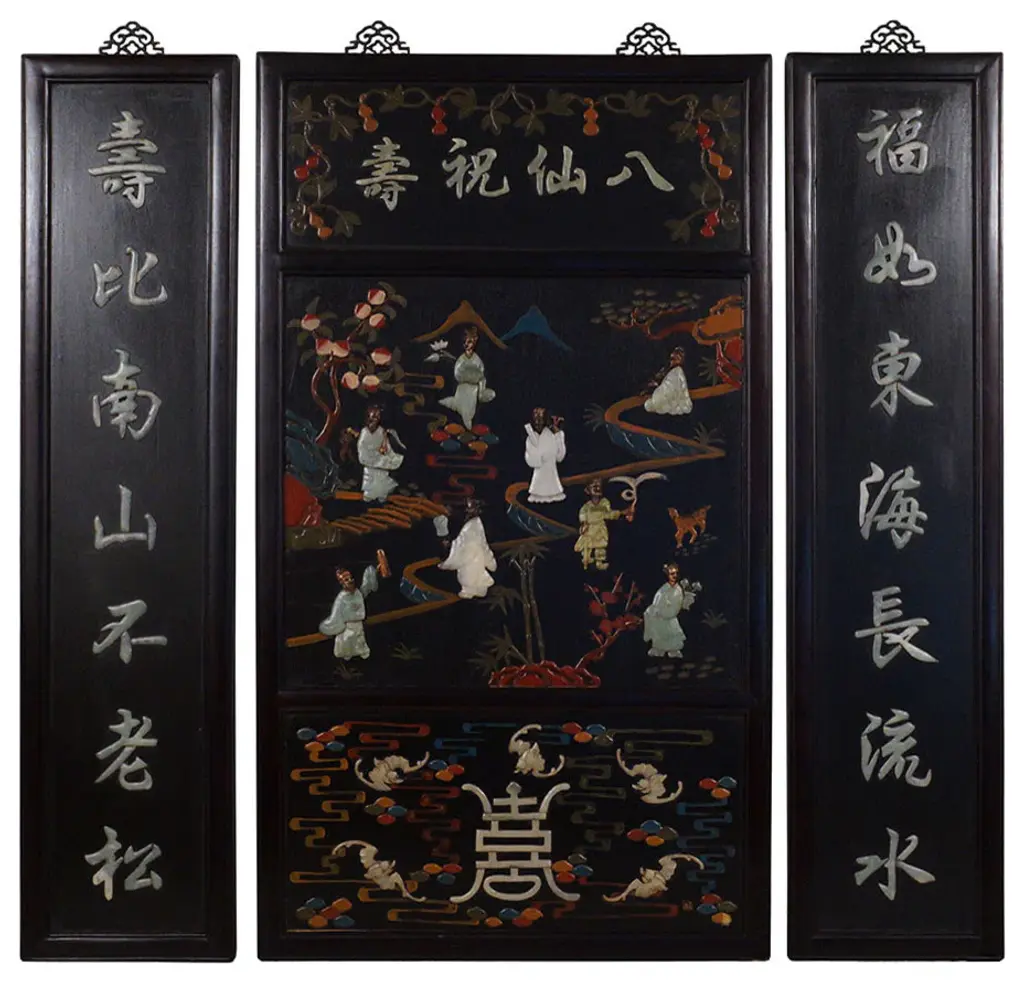 八仙祝壽
福如東海長流水
壽比南山不老松
壽